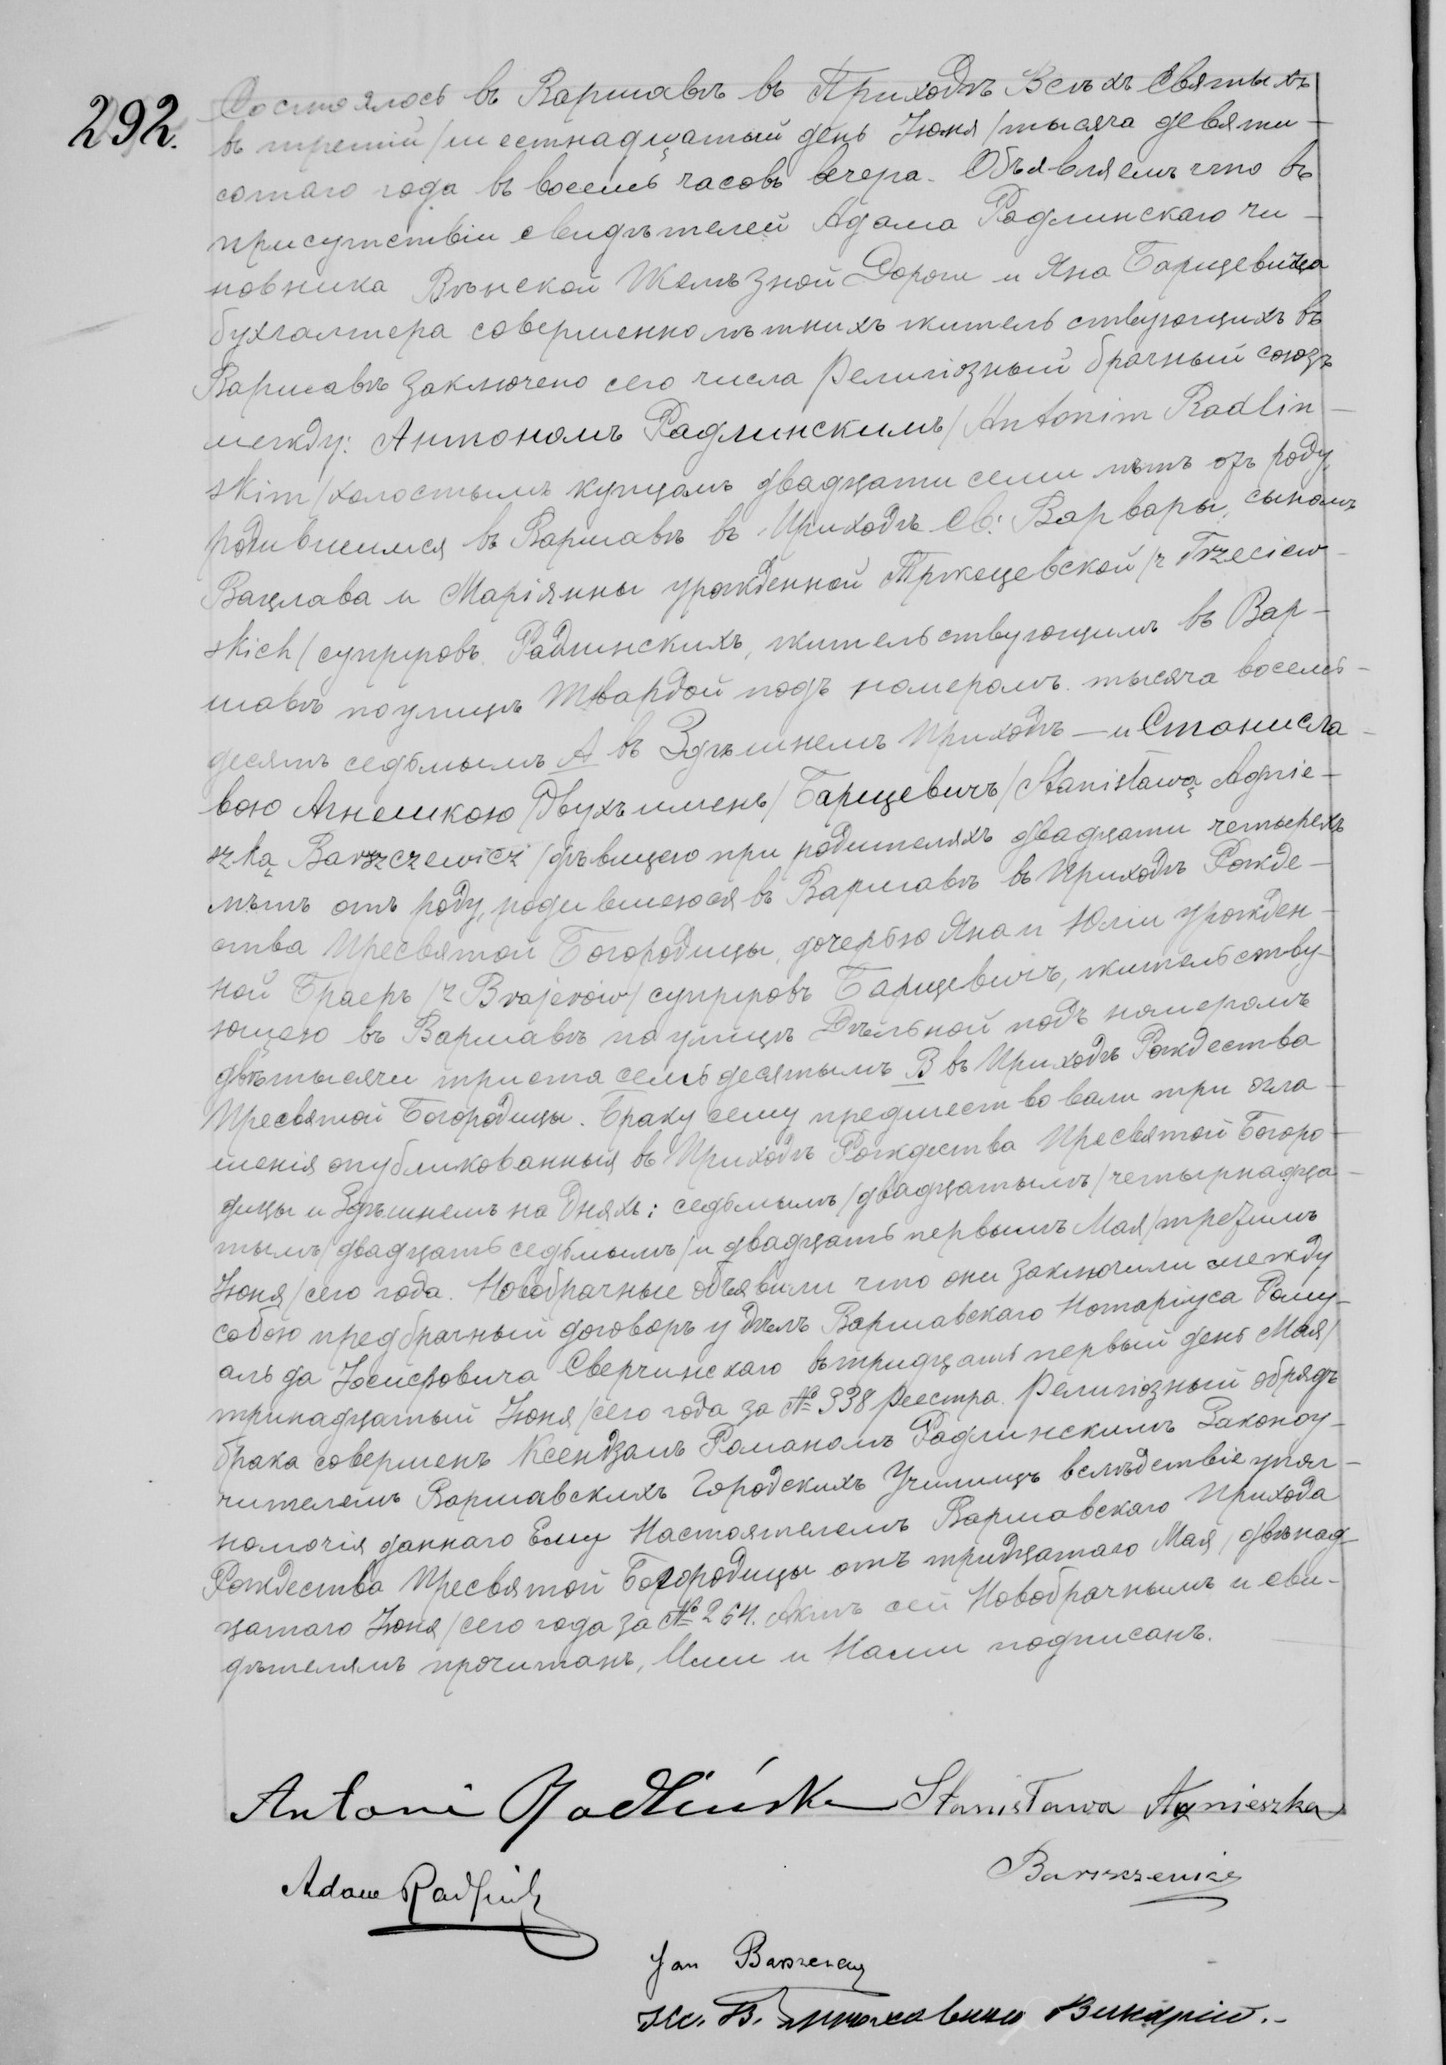 292.
Состоялось въ Варшавѣ въ Приходѣ Всѣхъ Святыхъ
въ третій /шестнадцатый день Іюня /тысяча девяти-
сотаго года въ восемь часовъ вечера. Объявляемъ что въ
присутствіи свидѣтелей Адама Радлинскаго чи-
новника Вѣнской Желѣзной Дороги и Яна Барщевича
бухгалтера совершеннолѣтнихъ жительствующихъ въ
Варшавѣ заключено сего числа Религіозный брачный союзъ
между: Антономъ Радлинскимъ /Antonim Radlin-
skim/ холостымъ купцомъ двадцати семи лѣтъ отъ роду
родившимся въ Варшавѣ въ Приходѣ Св: Варвары, сыномъ
Вацлава и Маріянны урожденной Тржецевской /z Trzeciew-
skich/ супруговъ Радлинскихъ, жительствующимъ въ Вар-
шавѣ по улицѣ Твардой подъ номеромъ тысяча восемь-
десятъ седьмымъ А въ Здѣшнемъ Приходѣ — и Станисла-
вою Агнешкою /Двухъ именъ/ Барщевичъ /Stanisławą Agnie-
szką Barszczewicz /дѣвицею при родителяхъ двадцати четырехъ
лѣтъ отъ роду, родившеюся въ Варшавѣ въ Приходѣ Рожде-
ства Пресвятой Богородицы, дочерью Яна и Юліи урожден-
ной Браеръ /z Brajerów/ супруговъ Барщевичъ, жительству-
ющею въ Варшавѣ по улицѣ Дѣльной подъ номеромъ
двѣ тысячи триста семьдесятымъ В въ Приходѣ Рождества
Пресвятой Богородицы. Браку сему предшествовали три огла-
шенія опубликованныя въ Приходѣ Рождества Пресвятой Богоро-
дицы и Здѣшнемъ на Дняхъ: седьмымъ /двадцатымъ/ четырнадца-
тымъ /двадцать седьмымъ/ и двадцать первымъ Мая /третьимъ
Іюня/ сего года. Новобрачные объявили что они заключили между
собою предбрачный договоръ у дѣлъ Варшавскаго Нотаріуса Рому-
альда Іосифовича Сверчинскаго въ тридцать первый день Мая/
тринадцатый Іюня /сего года за № 338 Реестра. Религіозный обрядъ
брака совершенъ Ксендзомъ Романомъ Радлинскимъ Законоу-
чителемъ Варшавскихъ Городскихъ Училищъ вслѣдствіе упол-
номочія даннаго Ему Настоятелемъ Варшавскаго Прихода
Рождества Пресвятой Богородицы отъ тридцатаго Мая /двѣнад-
цатаго Іюня /сего года за № 264. Актъ сей Новобрачнымъ и сви-
дѣтелямъ прочитанъ, Ими и Нами подписанъ.
Antoni Radliński Stanisława Agnieszka
Barszczewicz
Adam Radliński
Jan
Кс. В. Викарій.-